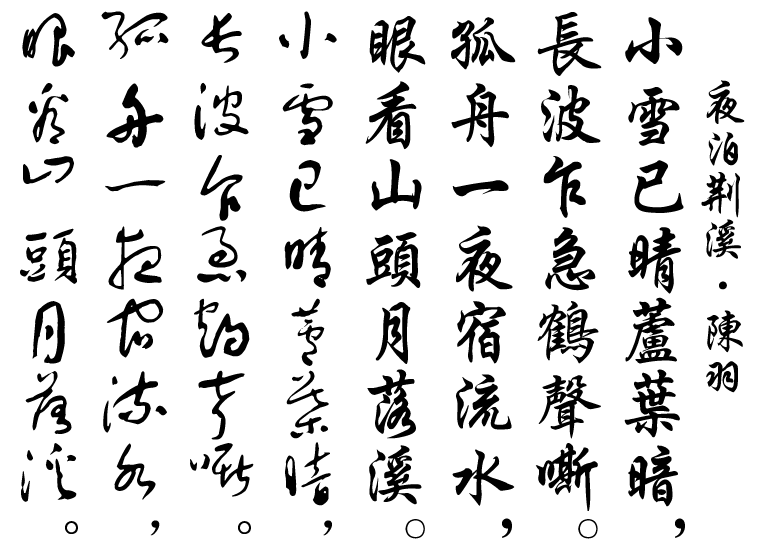 夜泊荆溪·陳羽
小雪已晴蘆葉暗，
長波乍急鶴聲嘶。
孤舟一夜宿流水，
眼看山頭月落溪。
小雪已晴蘆葉暗，
長波乍急鶴聲嘶。
孤舟一夜宿流水，
眼看山頭月落溪。